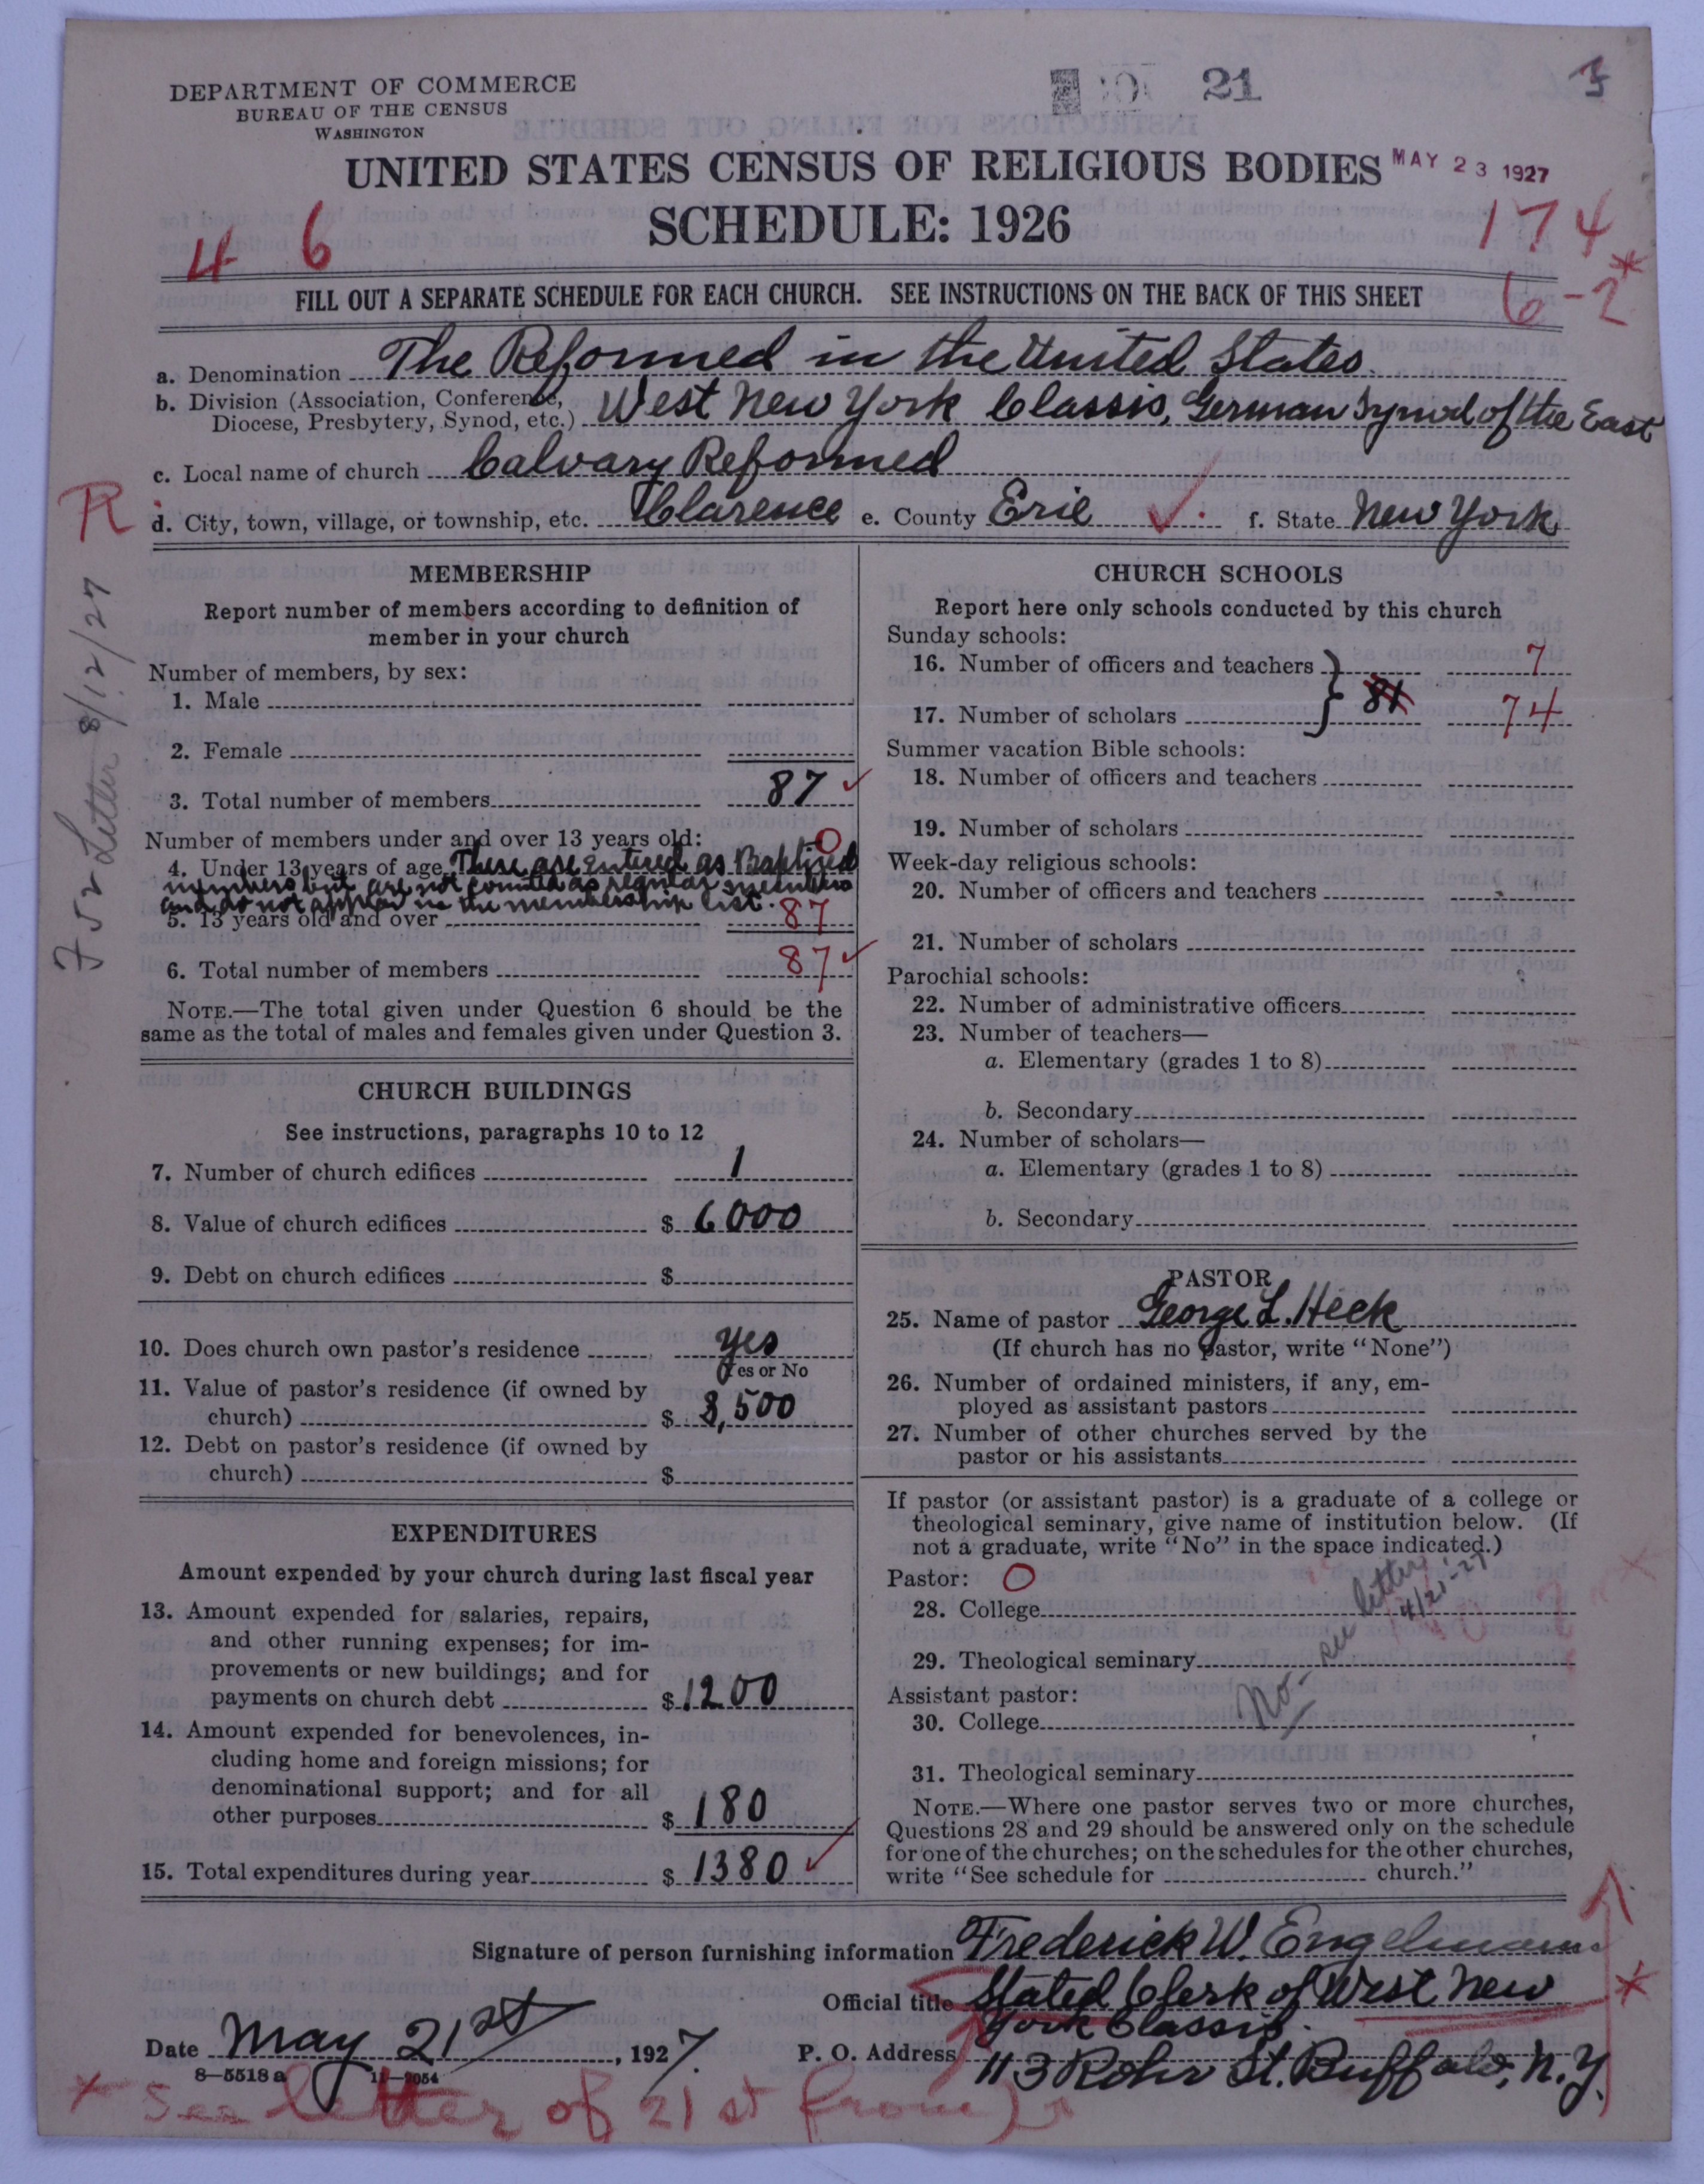 DEPARTMENT OF COMMERCE
BUREAU OF THE CENSUS
WASHINGTON
21
UNITED STATES CENSUS OF RELIGIOUS BODIES
MAY 23 1927
SCHEDULE: 1926
4 6
174
6-2*
FILL OUT A SEPARATE SCHEDULE FOR EACH CHURCH. SEE INSTRUCTIONS ON THE BACK OF THIS SHEET
a. Denomination The Reformed in the United States
b. Division (Association, Conference, Diocese, Presbytery, Synod, etc.) West New York Classis, German Synod of the East
c. Local name of church Calvary Reformed
R d. City, town, village, or township, etc. Clarence e. County Erie f. State New York
752 Letter 8/12/27
MEMBERSHIP
Report number of members according to definition of
member in your church
Number of members, by sex:
1. Male
2. Female
3. Total number of members 87
Number of members under and over 13 years old:
4. Under 13 years of age These are entered as Baptized 0
members but are not counted as regular members
and do not appear in the membership list.
5. 13 years old and over 87
6. Total number of members 87
NOTE.—The total given under Question 6 should be the
same as the total of males and females given under Question 3.
CHURCH BUILDINGS
See instructions, paragraphs 10 to 12
7. Number of church edifices 1
8. Value of church edifices $ 6000
9. Debt on church edifices $
10. Does church own pastor's residence yes
Yes or No
11. Value of pastor's residence (if owned by
church) $ 3,500
12. Debt on pastor's residence (if owned by
church) $
EXPENDITURES
Amount expended by your church during last fiscal year
13. Amount expended for salaries, repairs,
and other running expenses; for im-
provements or new buildings; and for
payments on church debt $ 1200
14. Amount expended for benevolences, in-
cluding home and foreign missions; for
denominational support; and for all
other purposes $ 180
15. Total expenditures during year $ 1380
CHURCH SCHOOLS
Report here only schools conducted by this church
Sunday schools:
16. Number of officers and teachers 7
81
17. Number of scholars 74
Summer vacation Bible schools:
18. Number of officers and teachers
19. Number of scholars
Week-day religious schools:
20. Number of officers and teachers
21. Number of scholars
Parochial schools:
22. Number of administrative officers
23. Number of teachers—
a. Elementary (grades 1 to 8)
b. Secondary
24. Number of scholars—
a. Elementary (grades 1 to 8)
b. Secondary
PASTOR
25. Name of pastor George L. Heck
(If church has no pastor, write "None")
26. Number of ordained ministers, if any, em-
ployed as assistant pastors
27. Number of other churches served by the
pastor or his assistants
If pastor (or assistant pastor) is a graduate of a college or
theological seminary, give name of institution below. (If
not a graduate, write "No" in the space indicated.)
Pastor: O
28. College
29. Theological seminary
No- see letter 4/21-27
Assistant pastor:
30. College
31. Theological seminary
NOTE.—Where one pastor serves two or more churches,
Questions 28 and 29 should be answered only on the schedule
for one of the churches; on the schedules for the other churches,
write "See schedule for church."
Signature of person furnishing information Frederick W. Engelmann
Official title Stated Clerk of West New
York Classis.
Date May 21st, 1927. P. O. Address 113 Rohr St. Buffalo, N.Y.
8-5518 a 11-9054
* See letter of 21st from